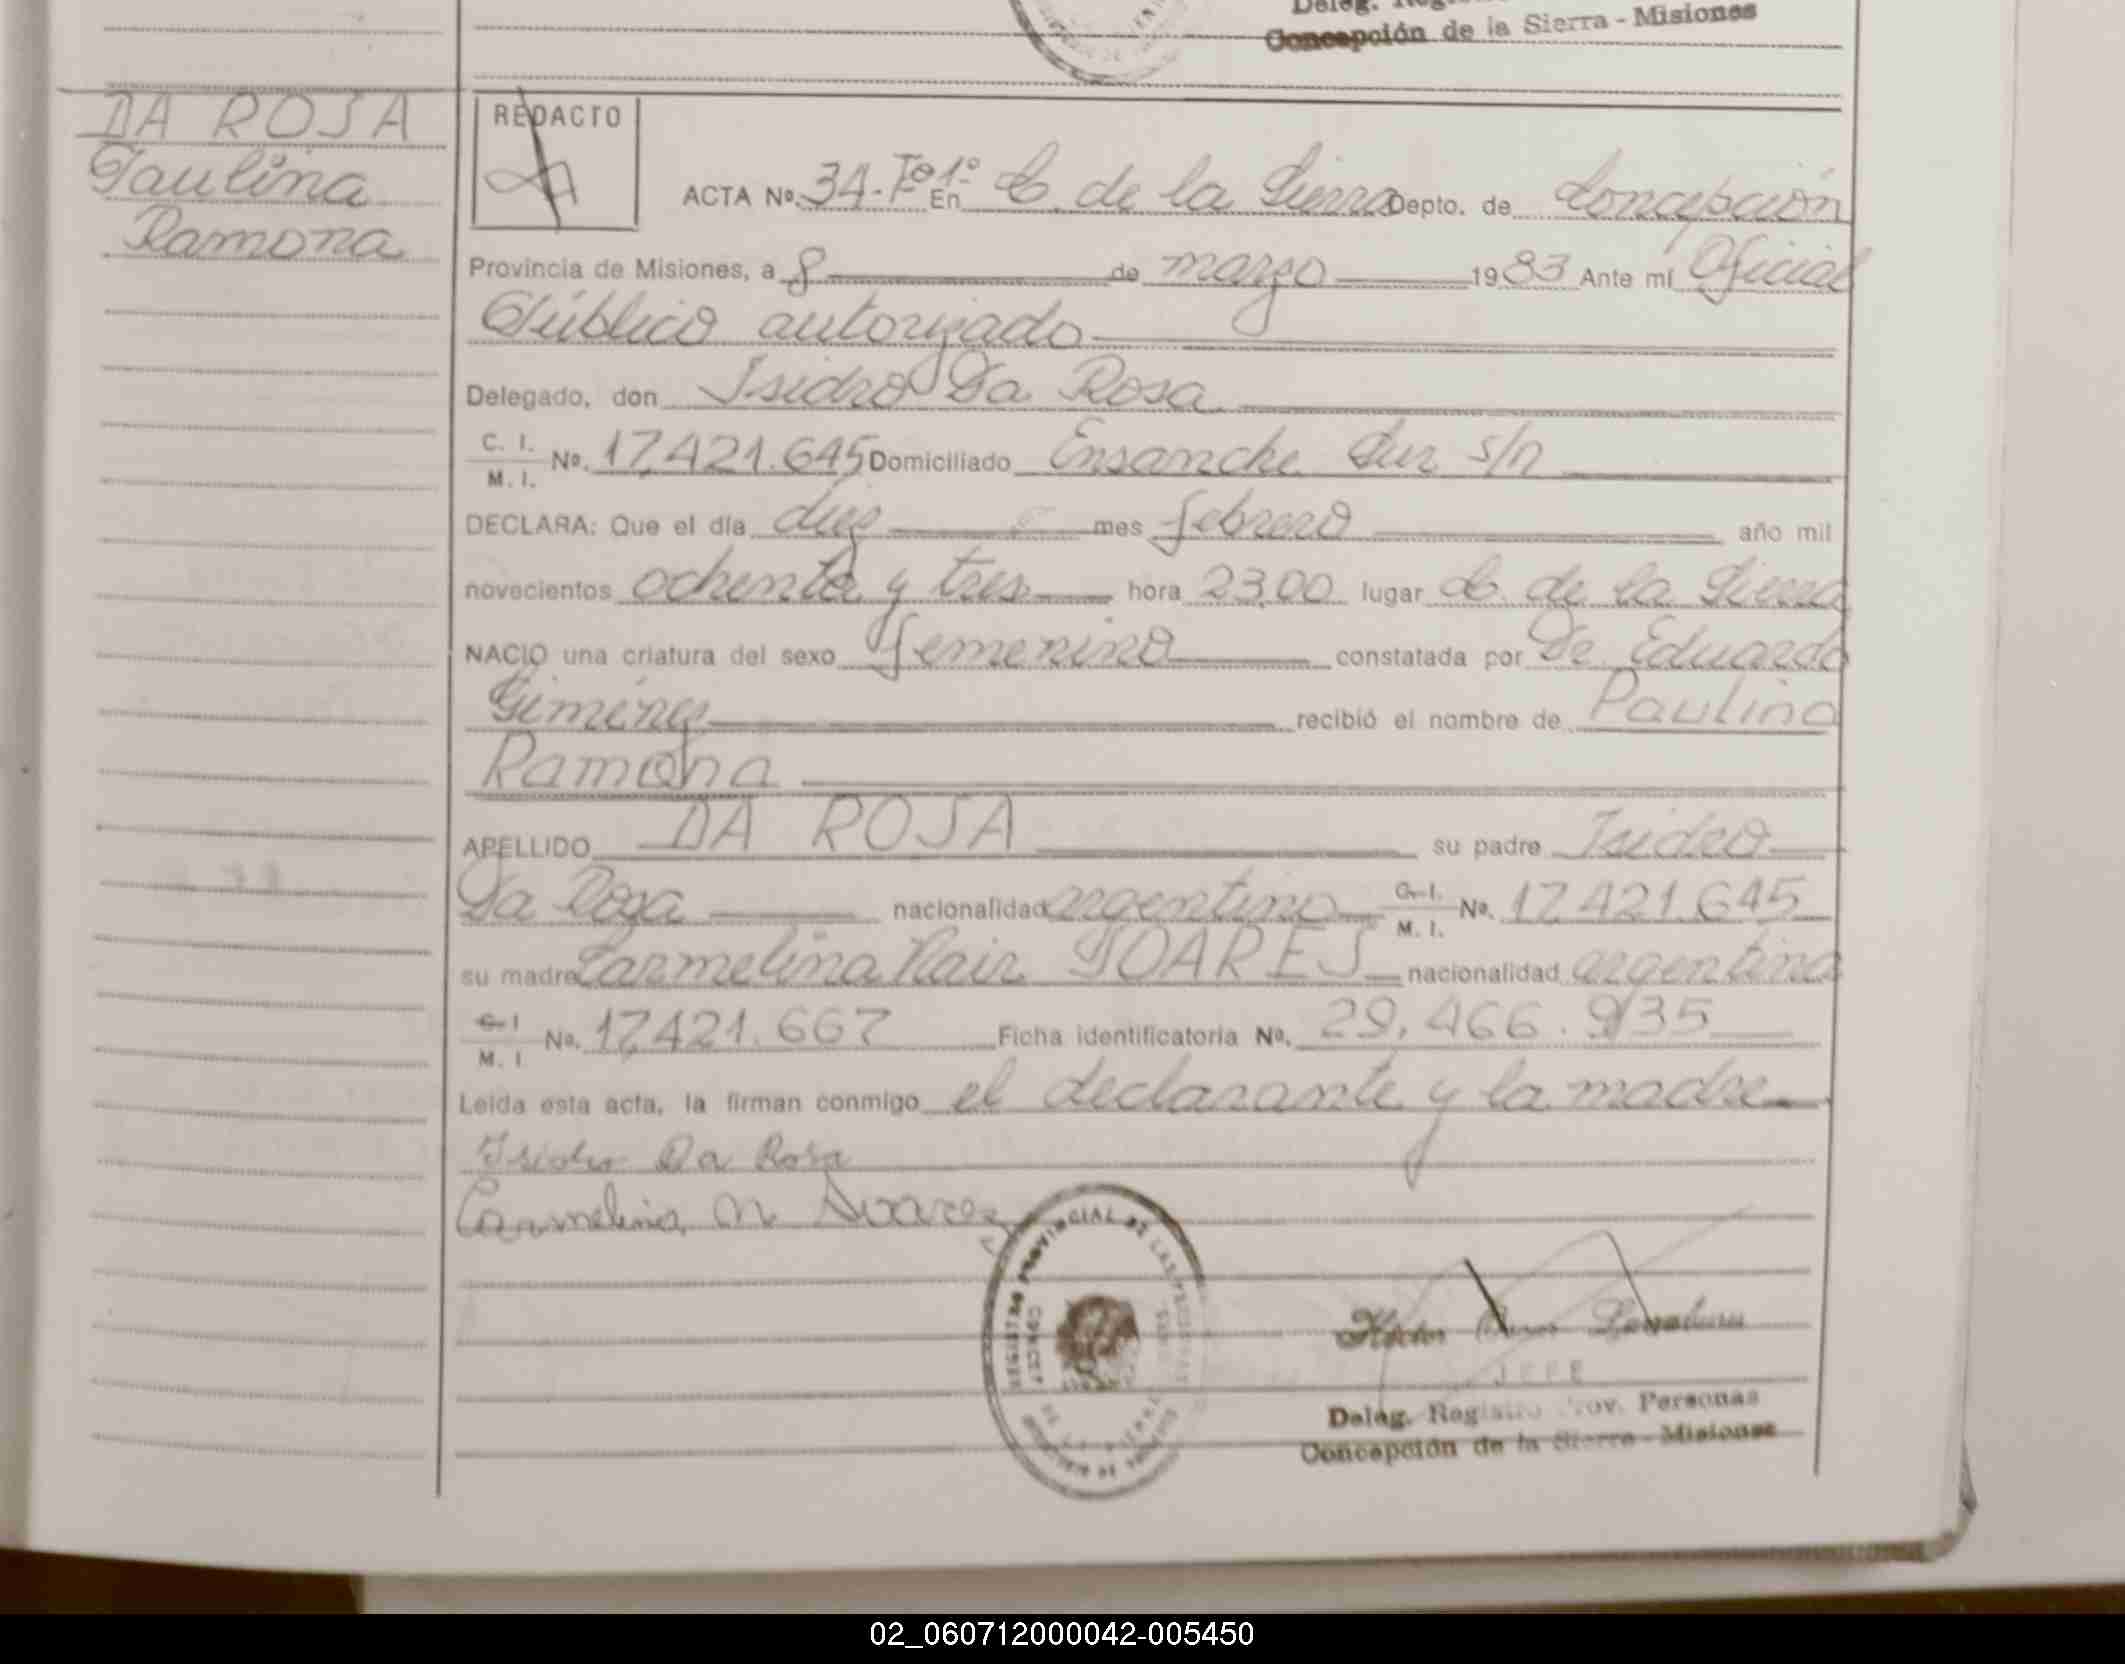 Deleg.
Concepción de la Sierra - Misiones
DA ROSA
Paulina
Ramona
REDACTO
ACTA Nº. 34-Tº1º En C. de la Sierra Depto. de Concepción
Provincia de Misiones, a 8 de marzo 1983 Ante mí Oficial
Público autorizado
Delegado, don Isidro Da Rosa
C. I.
M. I. Nº. 17.421.645 Domiciliado Ensanche Sur s/n
DECLARA: Que el día diez mes febrero año mil
novecientos ochenta y tres hora 23,00 lugar C. de la Sierra
NACIO una criatura del sexo femenino constatada por Dr Eduardo
Gimenez recibió el nombre de Paulina
Ramona
APELLIDO DA ROSA su padre Isidro
Da Rosa nacionalidad argentino C. I.
M. I. Nº. 17.421.645
su madre Carmelina Nair SOARES nacionalidad argentina
C. I
M. I. Nº. 17.421.667 Ficha identificatoria Nº. 29.466.935
Leída esta acta, la firman conmigo el declarante y la madre
Isidro Da Rosa
Carmelina N Suarez
REGISTRO PROVINCIAL DE LAS PERSONAS
JEFE
Deleg. Registro Prov. Personas
Concepción de la Sierra - Misiones
02_060712000042-005450